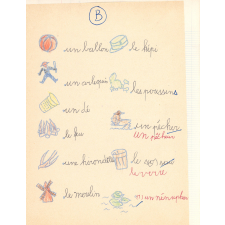 B
un ballon
le képi
un arlequin
les poussins
un dé
un pêcheur
un pêcheur
le feu
le verre
une hirondelle
le moulin
un nénuphar